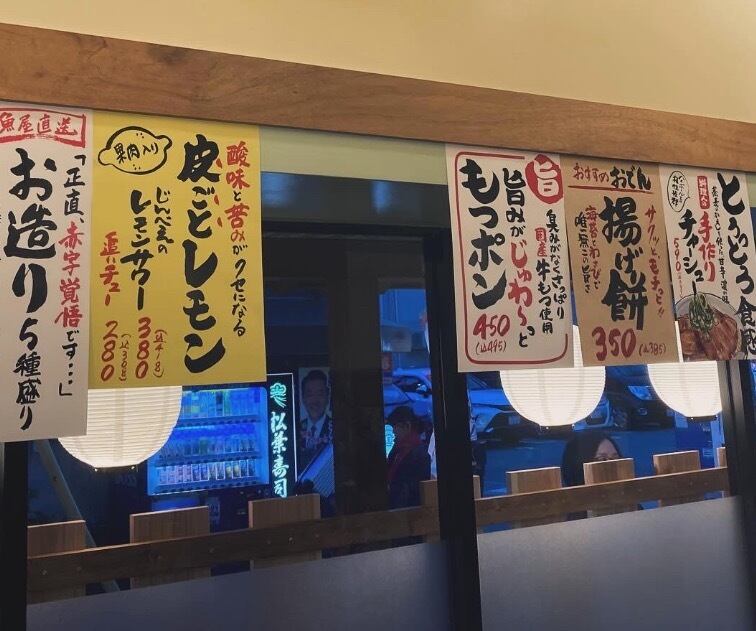 魚屋直送
「正直、赤字覚悟です…」
お造り5種盛り
果肉入り
酸味と苦みがクセになる
皮ごとレモン
じんべえの
レモンサワー 380
(込418)
追いチュー 280
旨
臭みがなくさっぱり
国産牛もつ使用
旨みがじゅわ〜っと
もつポン
450
(込495)
おすすめおでん
サクッと、もチッと!!
揚げ餅
海苔とわさびで
唯一無二の旨さ
350
(込385)
とうとう
手作り
チャーシュー
590
松葉寿司